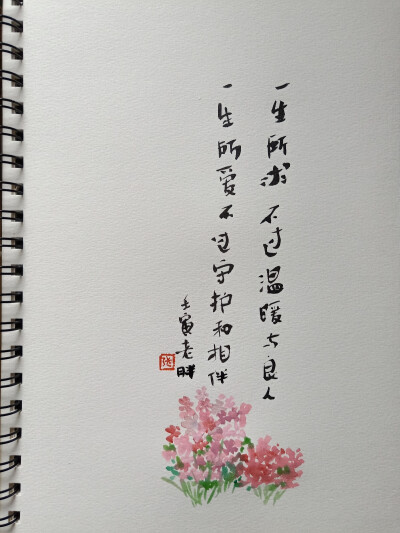 一生所求不过温暖与良人
一生所爱不过守护和相伴
壬寅老胖
张